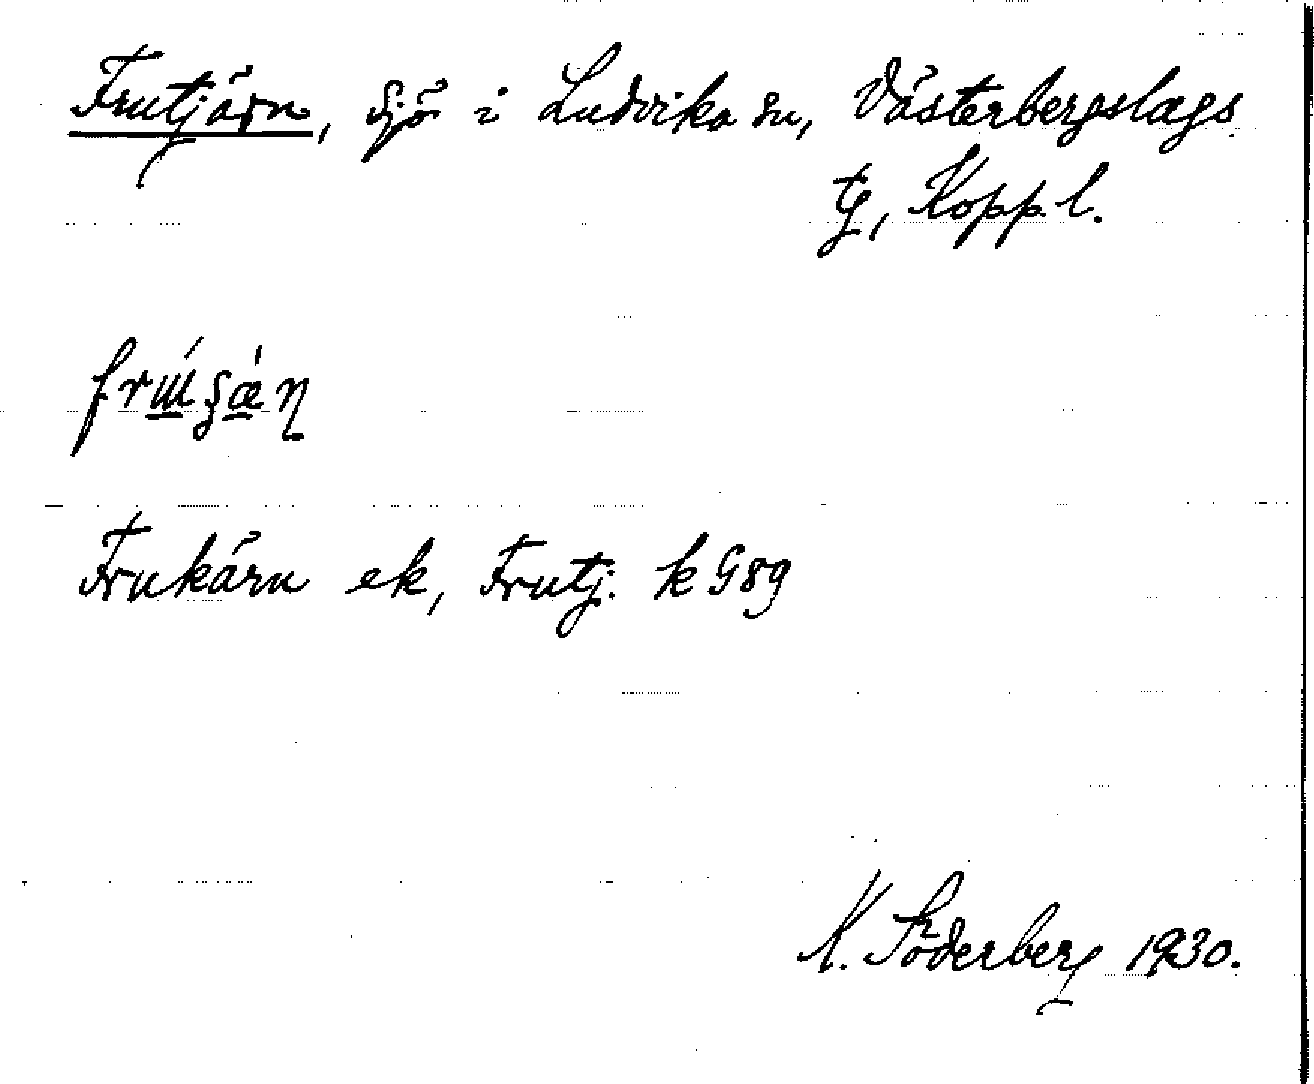 Frutjärn, sjö i Ludvika sn, Västerbergslags
tg, Kopp. l.
Frukärn ek, Frutj. k G89
K. Söderberg 1930.